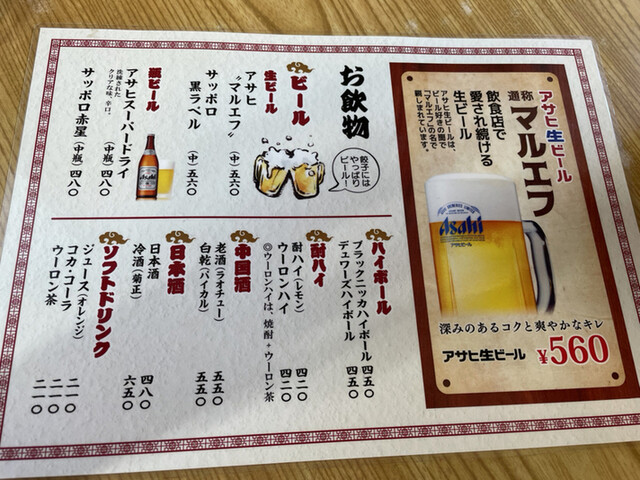 アサヒ生ビール
通称
マルエフ
飲食店で
愛され続ける
生ビール
アサヒ生ビールは、
ビール好きの間で
「マルエフ」の名で
親しまれています。
Asahi
アサヒ生ビール
深みのあるコクと爽やかなキレ
アサヒ生ビール ¥560
お飲物
餃子には
やっぱり
ビール！
ビール
生ビール
アサヒ
"マルエフ" (中) 五六〇
サッポロ
黒ラベル (中) 五六〇
瓶ビール
アサヒスーパードライ
洗練された
クリアな味、辛口。
(中瓶) 四八〇
サッポロ赤星 (中瓶) 四八〇
Asahi
ハイボール
ブラックニッカハイボール 四五〇
デュワーズハイボール 四五〇
酎ハイ
酎ハイ(レモン) 四二〇
ウーロンハイ 四二〇
◎ウーロンハイは、焼酎+ウーロン茶
中国酒
老酒(ラオチュー) 五五〇
白乾(パイカル) 五五〇
日本酒
日本酒 四八〇
冷酒(菊正) 六五〇
ソフトドリンク
ジュース(オレンジ) 二一〇
コカ・コーラ 二一〇
ウーロン茶 二一〇